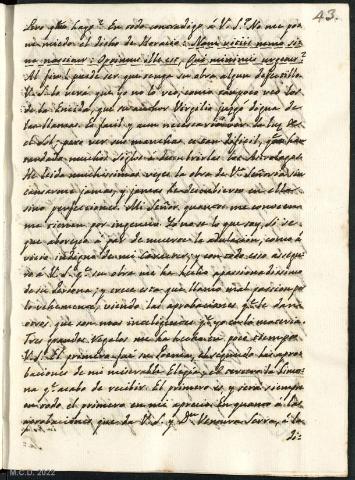 43.
haya. En todo me digo á V. S. No me po-
ne miedo el dicho de Horacio: Nam vitiis nemo si-
ne nascitur: Optimus ille est, Qui minimis urgetur.
Al fin puede ser que tenga su obra algun defectillo.
V. S. lo verá que yo no lo veo, como tampoco veo los
de la Eneida, que su author Virgilio juzgó digna de
las llamas. Es facil y aun necesario ver la luz de
el Sol; para ver sus manchas es tan dificil, que han
tardado muchos siglos á descubrirlas los Astrologos.
He leido muchisimas veces la obra de V. Señoria, sin
cansarme jamas, y jamas he descubierto en ella
sino perfecciones. Mi Señor, quantos me conocen
me tienen por ingenuo. Yo no se lo que soy, si se
que aborrezco á par de muerte la adulacion, como á
vicio indigno de mi caracter; y con todo eso asegu-
ro á V. S. que su obra me ha hecho apasionadisimo
de su Persona; y crece esta que llamo mi pasion por
lo vehemente, viendo las aprobaciones que le dan
otros, que son mas inteligentes que yo en la materia.
Tres grandes regalos me ha hecho en poco tiempo
V. S. El primero fué su Poema, el segundo las apro-
baciones de mi miserable Elogio, el tercero la
que acabo de recibir. El primero es, y será siempre
en todo el primero en mi aprecio. En quanto á las
aprobaciones que da V. S. y Dn. Ventura Serra, á la
M.C.D. 2022